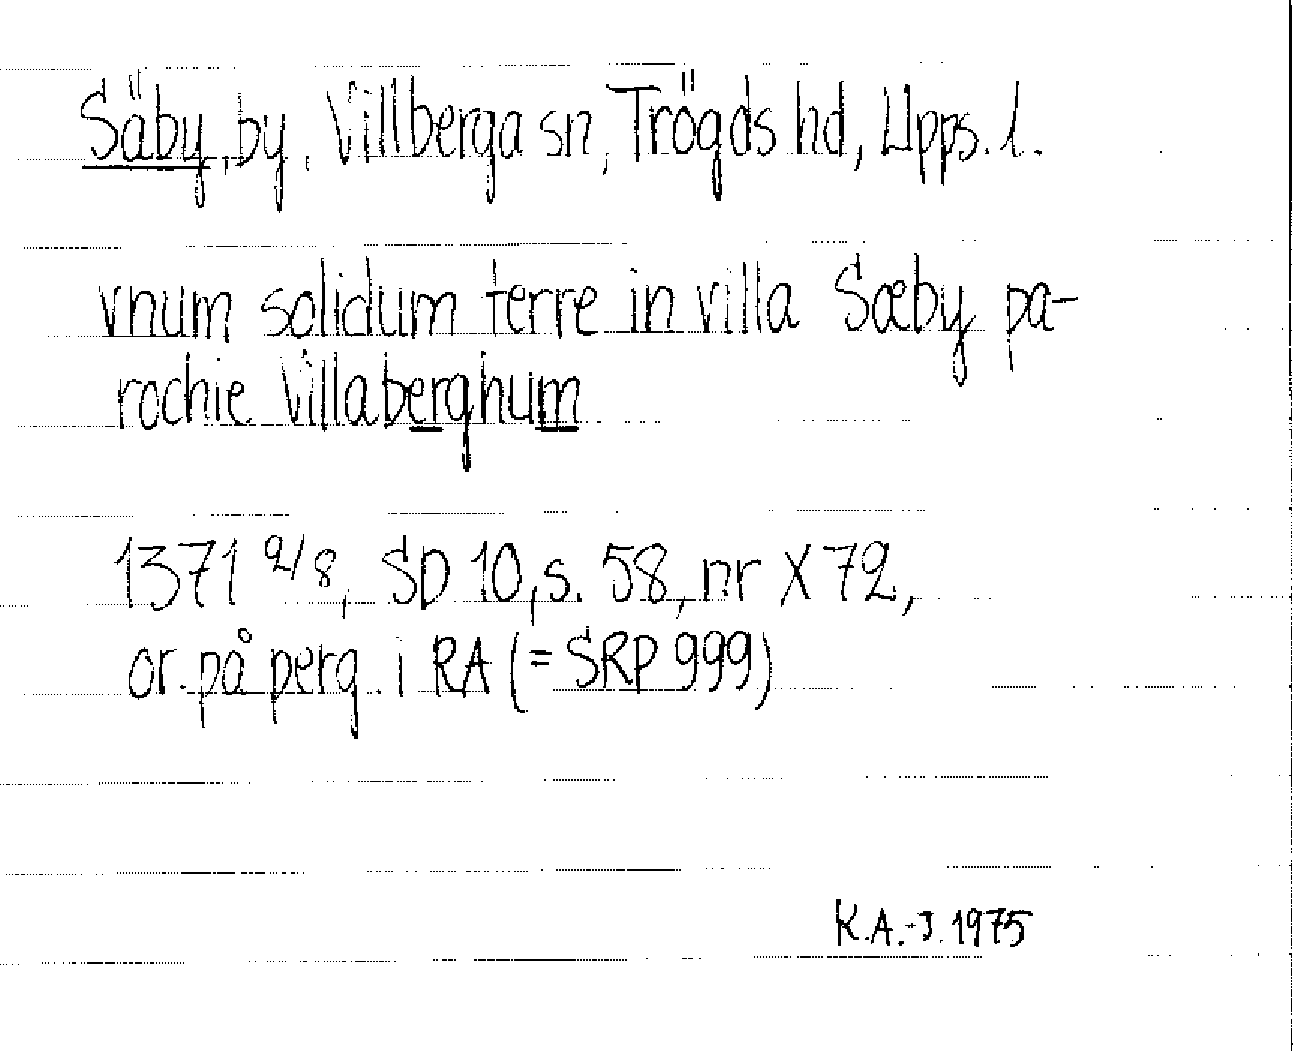 Säby, by, Villberga sn, Trögds hd, Upps. l.
vnum solidum terre in villa Sæby pa-
rochie Villaberghum
1371 9/8, SD 10, s. 58, nr X 72,
or. på perg. i RA (= SRP 999)
K.A.-J. 1975